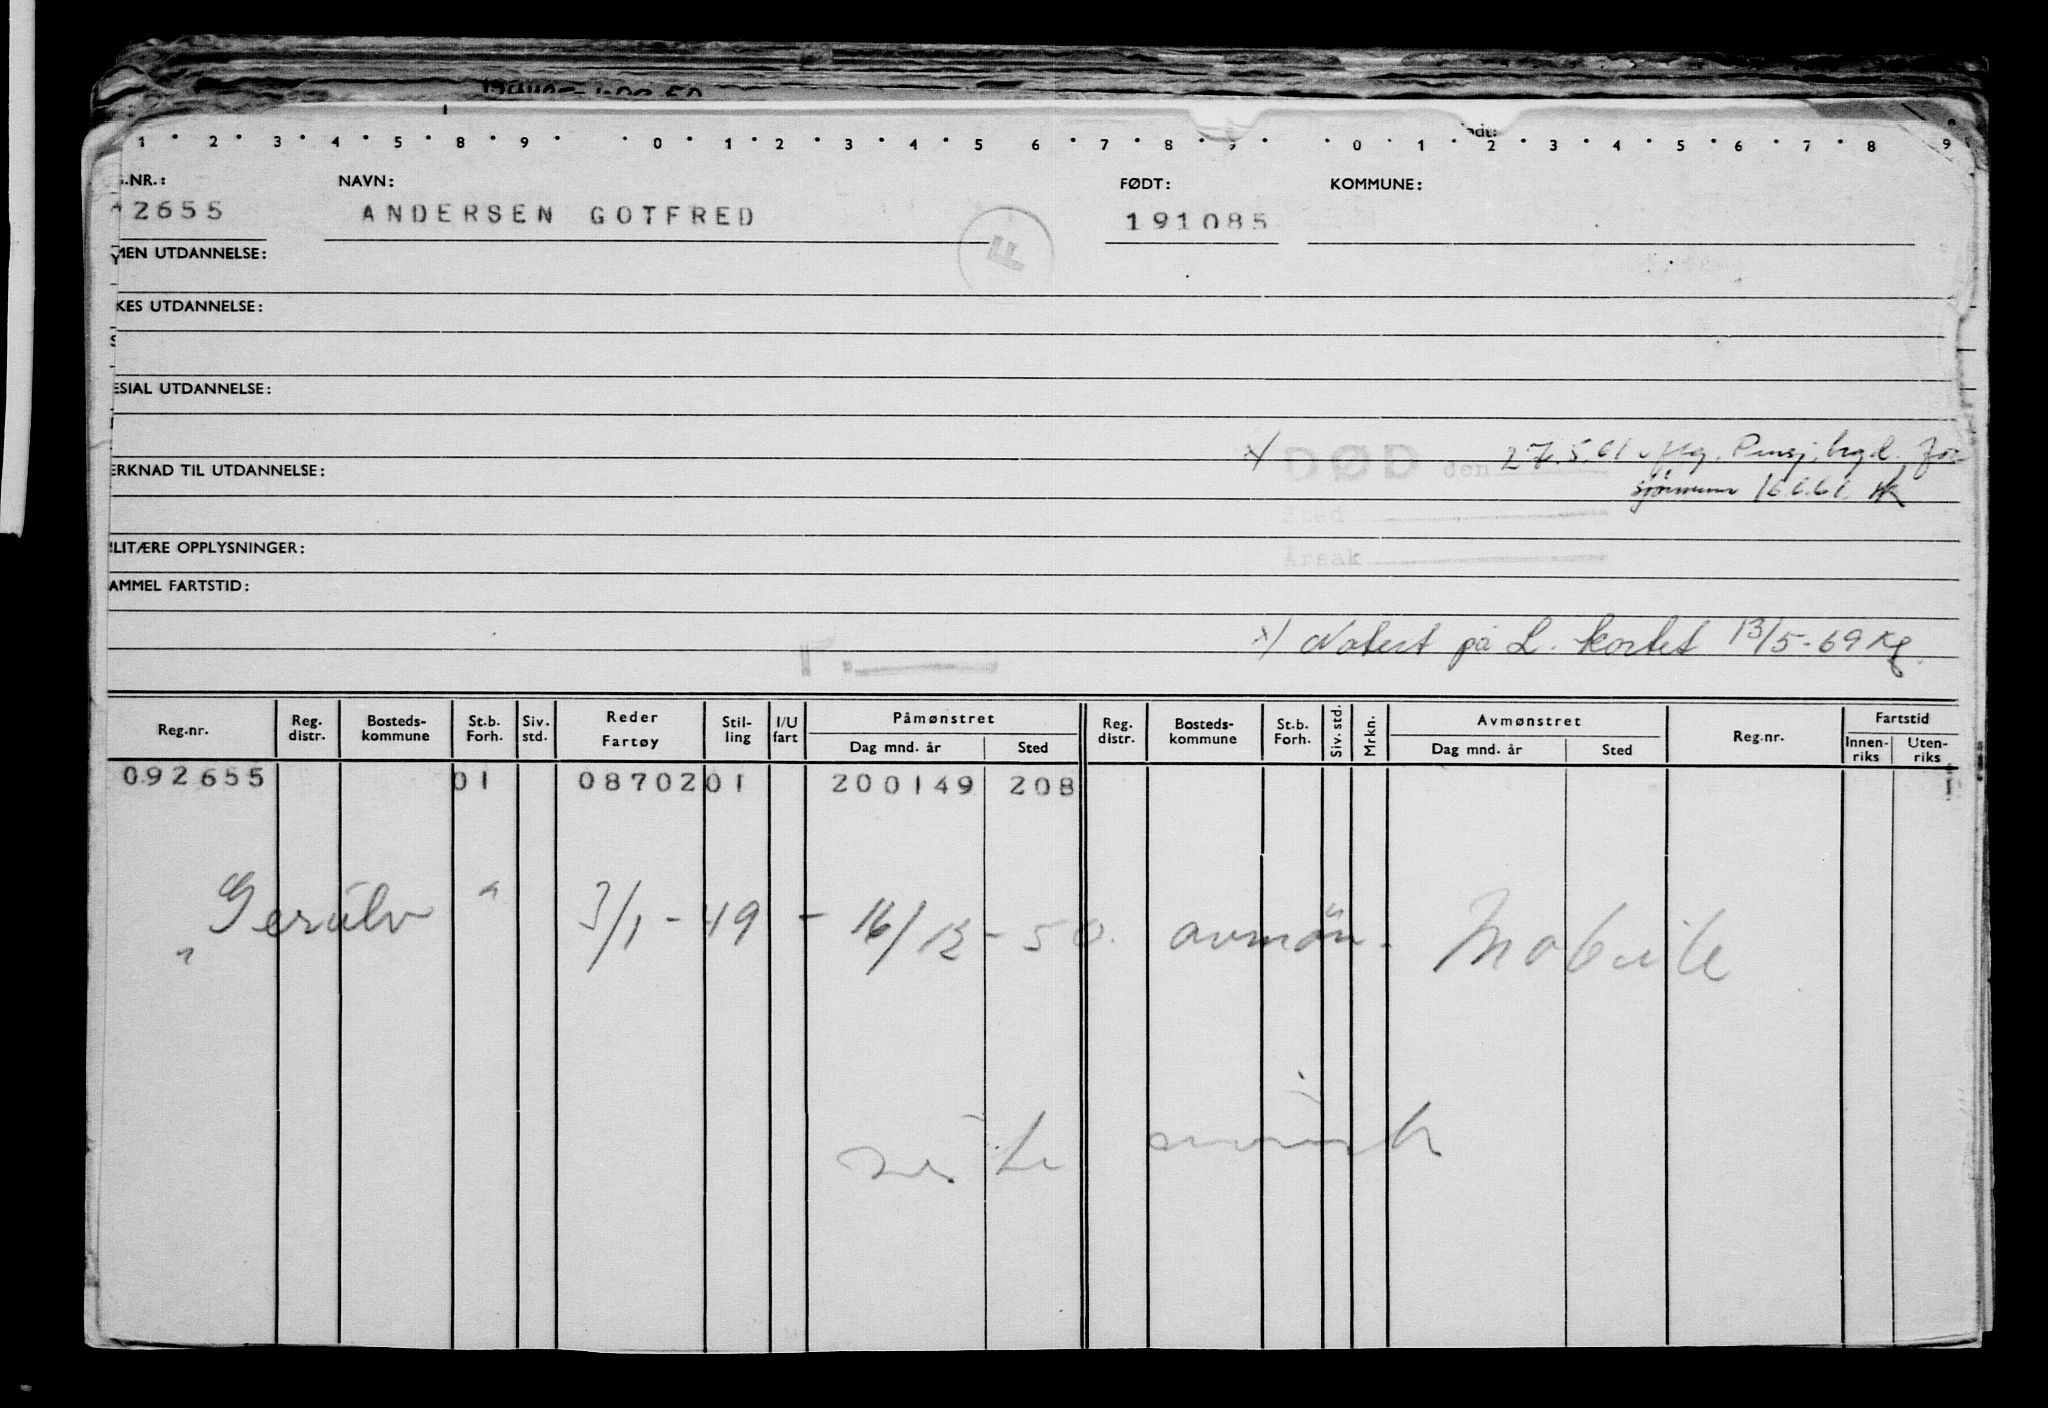 1 2 3 4 5 8 9 0 1 2 3 4 5 6 7 8 9 0 1 2 3 4 5 6 7 8 9
.NR.: NAVN: FØDT: KOMMUNE:
2655 ANDERSEN GOTFRED 191085
F
MEN UTDANNELSE:
KES UTDANNELSE:
ESIAL UTDANNELSE:
x/ DØD den 27.5.61 Pensj. for
ERKNAD TIL UTDANNELSE:
sjømenn 16.6.61.
Sted
LITÆRE OPPLYSNINGER:
Årsak
AMMEL FARTSTID:
x/ Notert på L. kortet 13/5-69 Kg.
Reg.nr. Reg. distr. Bosteds- kommune St.b. Forh. Siv. std. Reder Fartøy Stil- ling I/U fart Påmønstret Dag mnd. år Sted Reg. distr. Bosteds- kommune St.b. Forh. Siv. std. Mrkn. Avmønstret Dag mnd. år Sted Reg.nr. Fartstid Innen- riks Uten- riks
092655 01 0870201 200149 208 1
"Gerulv" 3/1-49 - 16/12-50. avmøn. Mobile